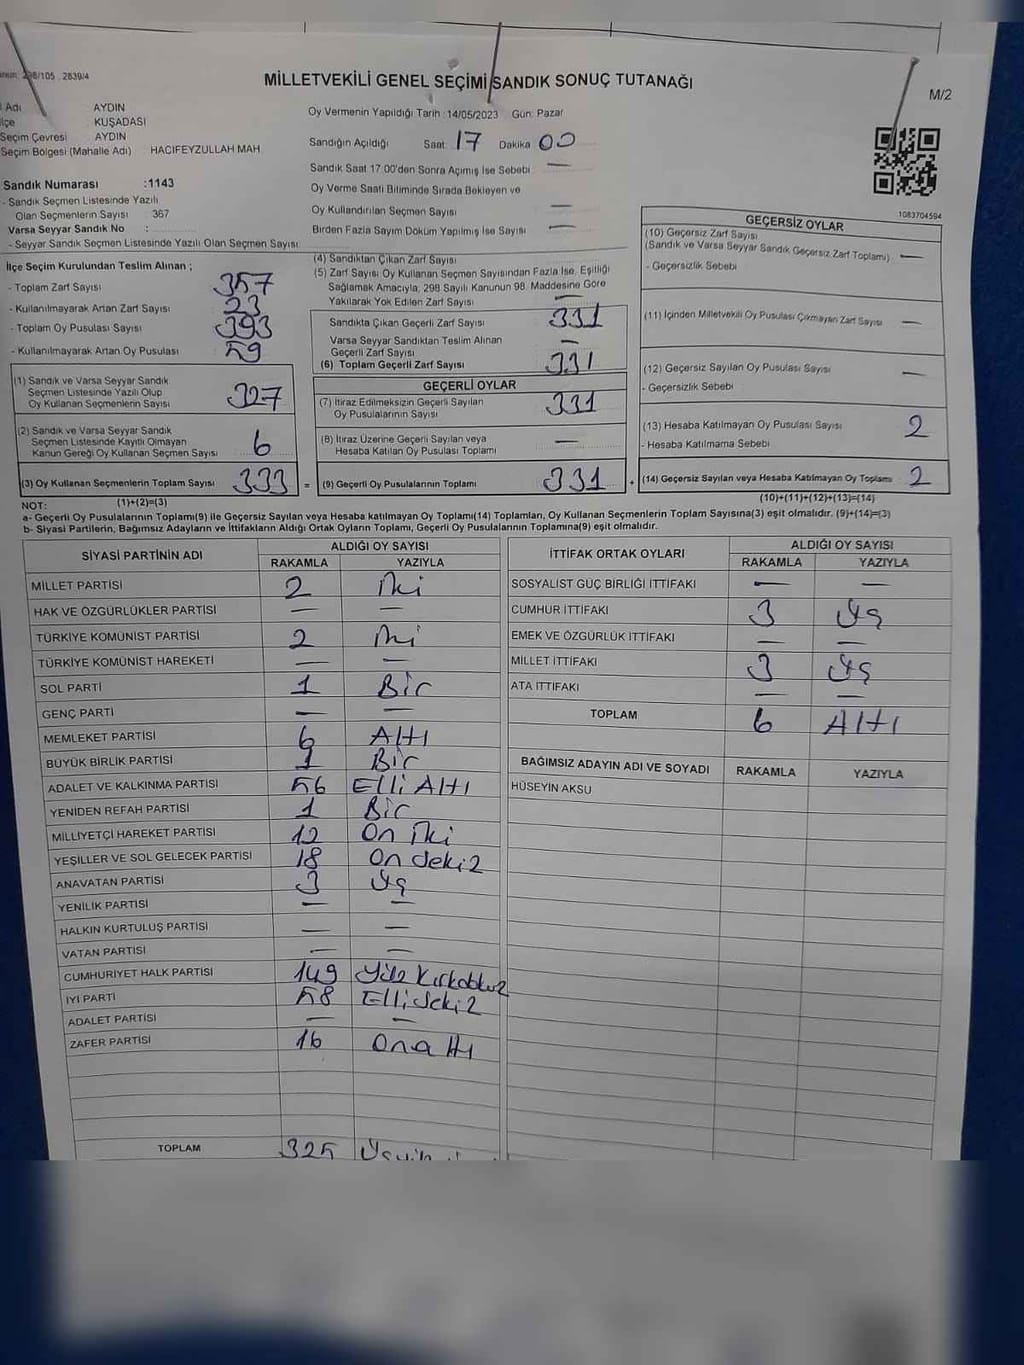 298/105 , 2839/4
MİLLETVEKİLİ GENEL SEÇİMİ SANDIK SONUÇ TUTANAĞI
M/2
Adı AYDIN
KUŞADASI
Seçim Çevresi AYDIN
Seçim Bölgesi (Mahalle Adı) HACIFEYZULLAH MAH.
Sandık Numarası :1143
- Sandık Seçmen Listesinde Yazılı
Olan Seçmenlerin Sayısı : 367
Varsa Seyyar Sandık No :
- Seyyar Sandık Seçmen Listesinde Yazılı Olan Seçmen Sayısı
Oy Vermenin Yapıldığı Tarih : 14/05/2023 Gün: Pazar
Sandığın Açıldığı Saat 17 Dakika 00
Sandık Saat 17.00'den Sonra Açımış İse Sebebi —
Oy Verme Saati Bitiminde Sırada Bekleyen ve
Oy Kullandırılan Seçmen Sayısı —
Birden Fazla Sayım Döküm Yapılmış İse Sayısı —
1083704594
İlçe Seçim Kurulundan Teslim Alınan ;
- Toplam Zarf Sayısı 357
- Kullanılmayarak Artan Zarf Sayısı 23
- Toplam Oy Pusulası Sayısı 393
- Kullanılmayarak Artan Oy Pusulası 59
(1) Sandık ve Varsa Seyyar Sandık
Seçmen Listesinde Yazılı Olup
Oy Kullanan Seçmenlerin Sayısı 327
(2) Sandık ve Varsa Seyyar Sandık
Seçmen Listesinde Kayıtlı Olmayan
Kanun Gereği Oy Kullanan Seçmen Sayısı 6
(3) Oy Kullanan Seçmenlerin Toplam Sayısı 333 =
(4) Sandıktan Çıkan Zarf Sayısı
(5) Zarf Sayısı Oy Kullanan Seçmen Sayısından Fazla İse, Eşitliği
Sağlamak Amacıyla, 298 Sayılı Kanunun 98. Maddesine Göre
Yakılarak Yok Edilen Zarf Sayısı —
Sandıkta Çıkan Geçerli Zarf Sayısı 331
Varsa Seyyar Sandıktan Teslim Alınan
Geçerli Zarf Sayısı —
(6) Toplam Geçerli Zarf Sayısı 331
GEÇERLİ OYLAR
(7) İtiraz Edilmeksizin Geçerli Sayılan
Oy Pusulalarının Sayısı 331
(8) İtiraz Üzerine Geçerli Sayılan veya
Hesaba Katılan Oy Pusulası Toplamı —
(9) Geçerli Oy Pusulalarının Toplamı 331 +
GEÇERSİZ OYLAR
(10) Geçersiz Zarf Sayısı
(Sandık ve Varsa Seyyar Sandık Geçersiz Zarf Toplamı) —
- Geçersizlik Sebebi
(11) İçinden Milletvekili Oy Pusulası Çıkmayan Zarf Sayısı —
(12) Geçersiz Sayılan Oy Pusulası Sayısı —
- Geçersizlik Sebebi
(13) Hesaba Katılmayan Oy Pusulası Sayısı 2
- Hesaba Katılmama Sebebi
(14) Geçersiz Sayılan veya Hesaba Katılmayan Oy Toplamı 2
NOT: (1)+(2)=(3) (10)+(11)+(12)+(13)=(14)
a- Geçerli Oy Pusulalarının Toplamı(9) ile Geçersiz Sayılan veya Hesaba katılmayan Oy Toplamı(14) Toplamları, Oy Kullanan Seçmenlerin Toplam Sayısına(3) eşit olmalıdır. (9)+(14)=(3)
b- Siyasi Partilerin, Bağımsız Adayların ve İttifakların Aldığı Ortak Oyların Toplamı, Geçerli Oy Pusulalarının Toplamına(9) eşit olmalıdır.
SİYASİ PARTİNİN ADI ALDIĞI OY SAYISI
RAKAMLA YAZIYLA
MİLLET PARTİSİ 2 İki
HAK VE ÖZGÜRLÜKLER PARTİSİ — —
TÜRKİYE KOMÜNİST PARTİSİ 2 İki
TÜRKİYE KOMÜNİST HAREKETİ — —
SOL PARTİ 1 Bir
GENÇ PARTİ — —
MEMLEKET PARTİSİ 6 Altı
BÜYÜK BİRLİK PARTİSİ 1 Bir
ADALET VE KALKINMA PARTİSİ 56 Elli Altı
YENİDEN REFAH PARTİSİ 1 Bir
MİLLİYETÇİ HAREKET PARTİSİ 12 On İki
YEŞİLLER VE SOL GELECEK PARTİSİ 18 On Sekiz
ANAVATAN PARTİSİ 3 Üç
YENİLİK PARTİSİ — —
HALKIN KURTULUŞ PARTİSİ — —
VATAN PARTİSİ — —
CUMHURİYET HALK PARTİSİ 149 Yüz Kırkdokuz
İYİ PARTİ 58 Elli Sekiz
ADALET PARTİSİ — —
ZAFER PARTİSİ 16 Onaltı
TOPLAM 325
İTTİFAK ORTAK OYLARI ALDIĞI OY SAYISI
RAKAMLA YAZIYLA
SOSYALİST GÜÇ BİRLİĞİ İTTİFAKI — —
CUMHUR İTTİFAKI 3 Üç
EMEK VE ÖZGÜRLÜK İTTİFAKI — —
MİLLET İTTİFAKI 3 Üç
ATA İTTİFAKI — —
TOPLAM 6 Altı
BAĞIMSIZ ADAYIN ADI VE SOYADI RAKAMLA YAZIYLA
HÜSEYİN AKSU